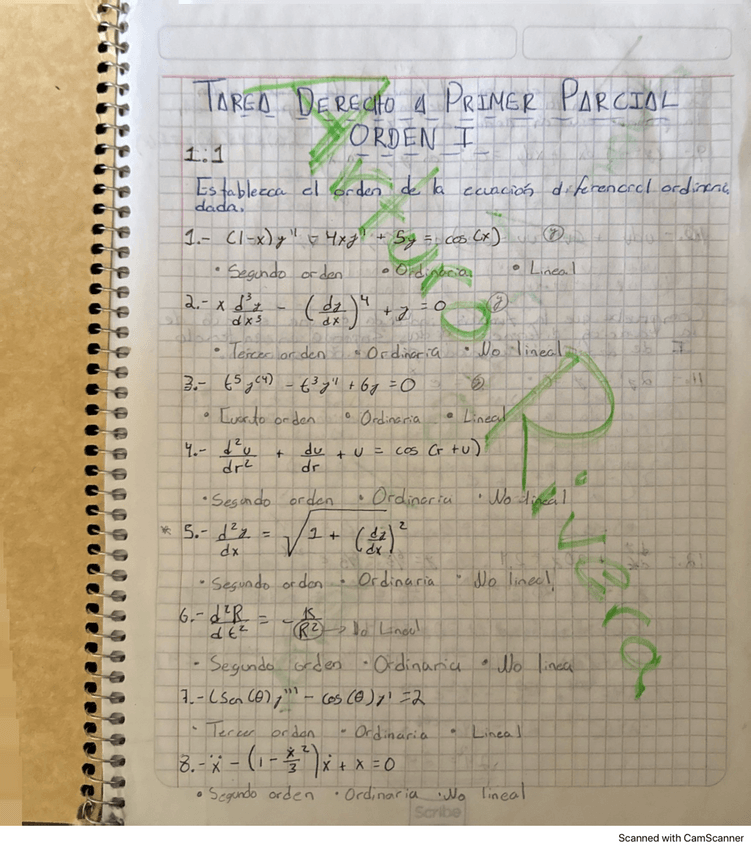 TAREA DERECHO A PRIMER PARCIAL
ORDEN I
1:1
Establezca el orden de la ecuación diferencial ordinaria
dada.
1.- (1-x)y'' - 4xy' + 5y = cos(x) (y)
• Segundo orden • Ordinaria • Lineal
2.- x d³y/dx³ - (dy/dx)⁴ + y = 0 (y)
• Tercer orden • Ordinaria • No lineal
3.- t⁵y⁽⁴⁾ - t³y'' + 6y = 0
• Cuarto orden • Ordinaria • Lineal
4.- d²u/dr² + du/dr + u = cos(r+u)
• Segundo orden • Ordinaria • No lineal
* 5.- d²y/dx = √1 + (dy/dx)²
• Segundo orden • Ordinaria • No lineal
6.- d²R/dt² = - K/R² → No Lineal
• Segundo orden • Ordinaria • No linea
7.- (Sen(θ)y''' - cos(θ)y' = 2
• Tercer orden • Ordinaria • Lineal
8.- ẍ - (1 - ẋ²/3)ẋ + x = 0
• Segundo orden • Ordinaria • No lineal
Arturo Rivera
Scribe
Scanned with CamScanner